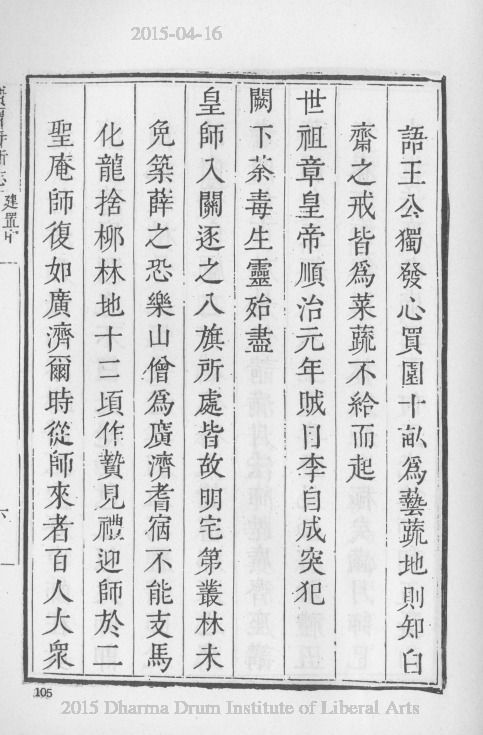 2015-04-16
語王公獨發心買園十畝為藝蔬地則知白
齋之戒皆為菜蔬不給而起
世祖章皇帝順治元年賊目李自成突犯
闕下荼毒生靈殆盡
皇師入關逐之八旗所處皆故明宅第叢林未
免築薜之恐樂山僧為廣濟耆宿不能支馬
化龍捨柳林地十二頃作贄見禮迎師於一
聖庵師復如廣濟爾時從師來者百人大衆
建置中
六
105
2015 Dharma Drum Institute of Liberal Arts